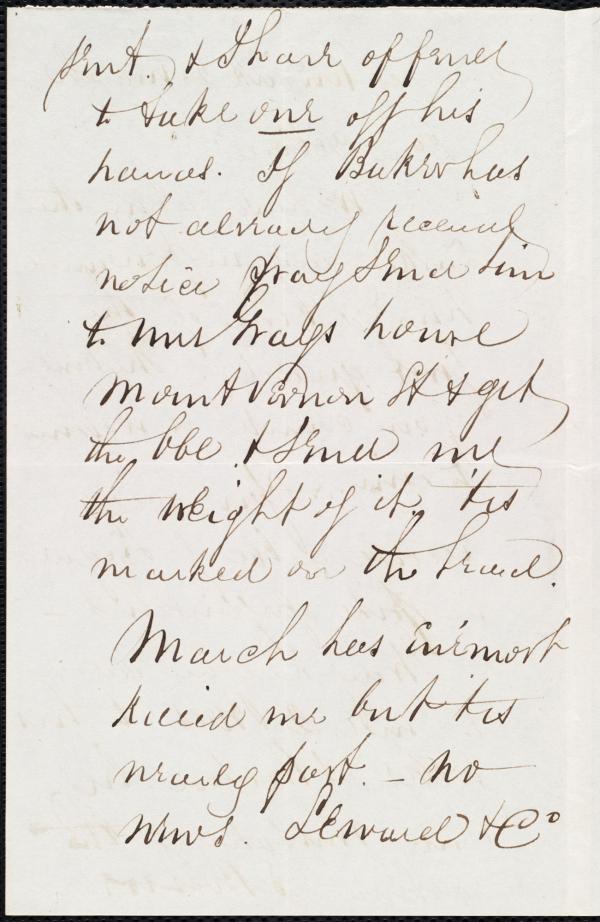 sent. & I have offered
to take one off his
hands. If Baker has
not already received
notice pray send him
to Mrs Grays house
Mount Vernon St & get
the bbl. & send me
the weight of it, 'tis
marked on the head.
March has e'enmost
killed me but 'tis
nearly past. - no
news. Seward & Co